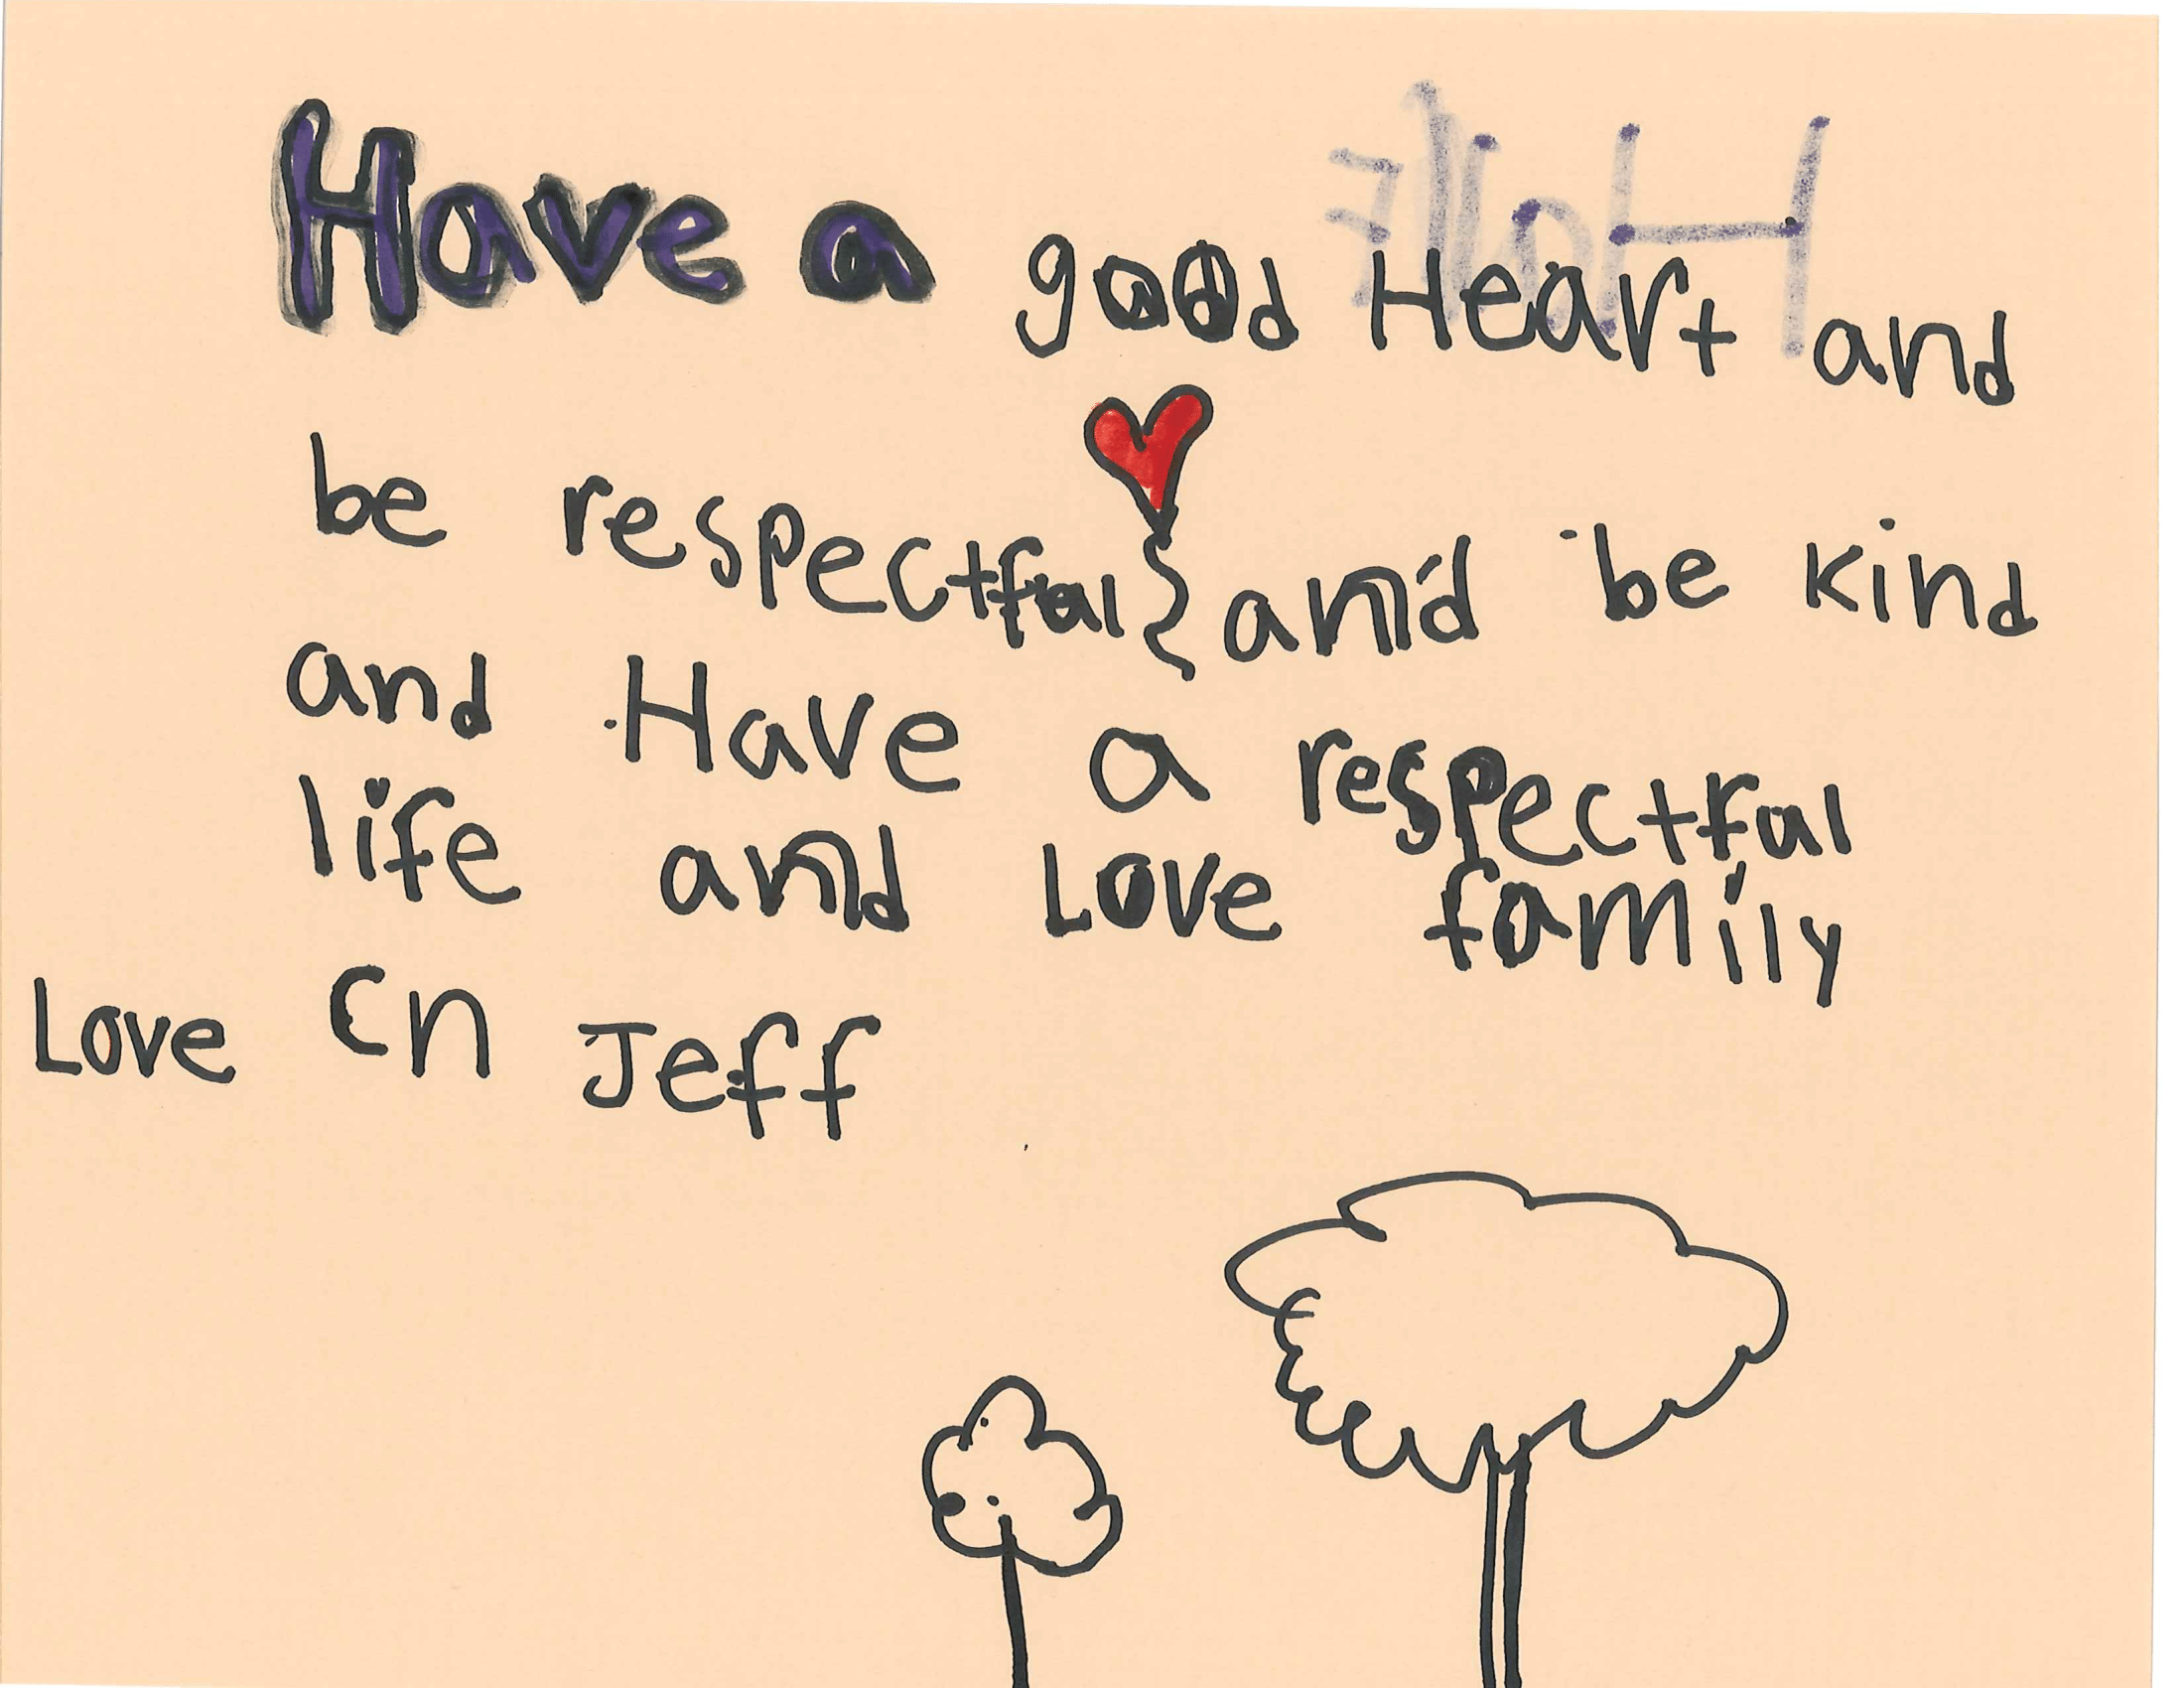 Have a good Heart and
be respectful and be kind
and Have a respectful
life and Love family
Love CN Jeff